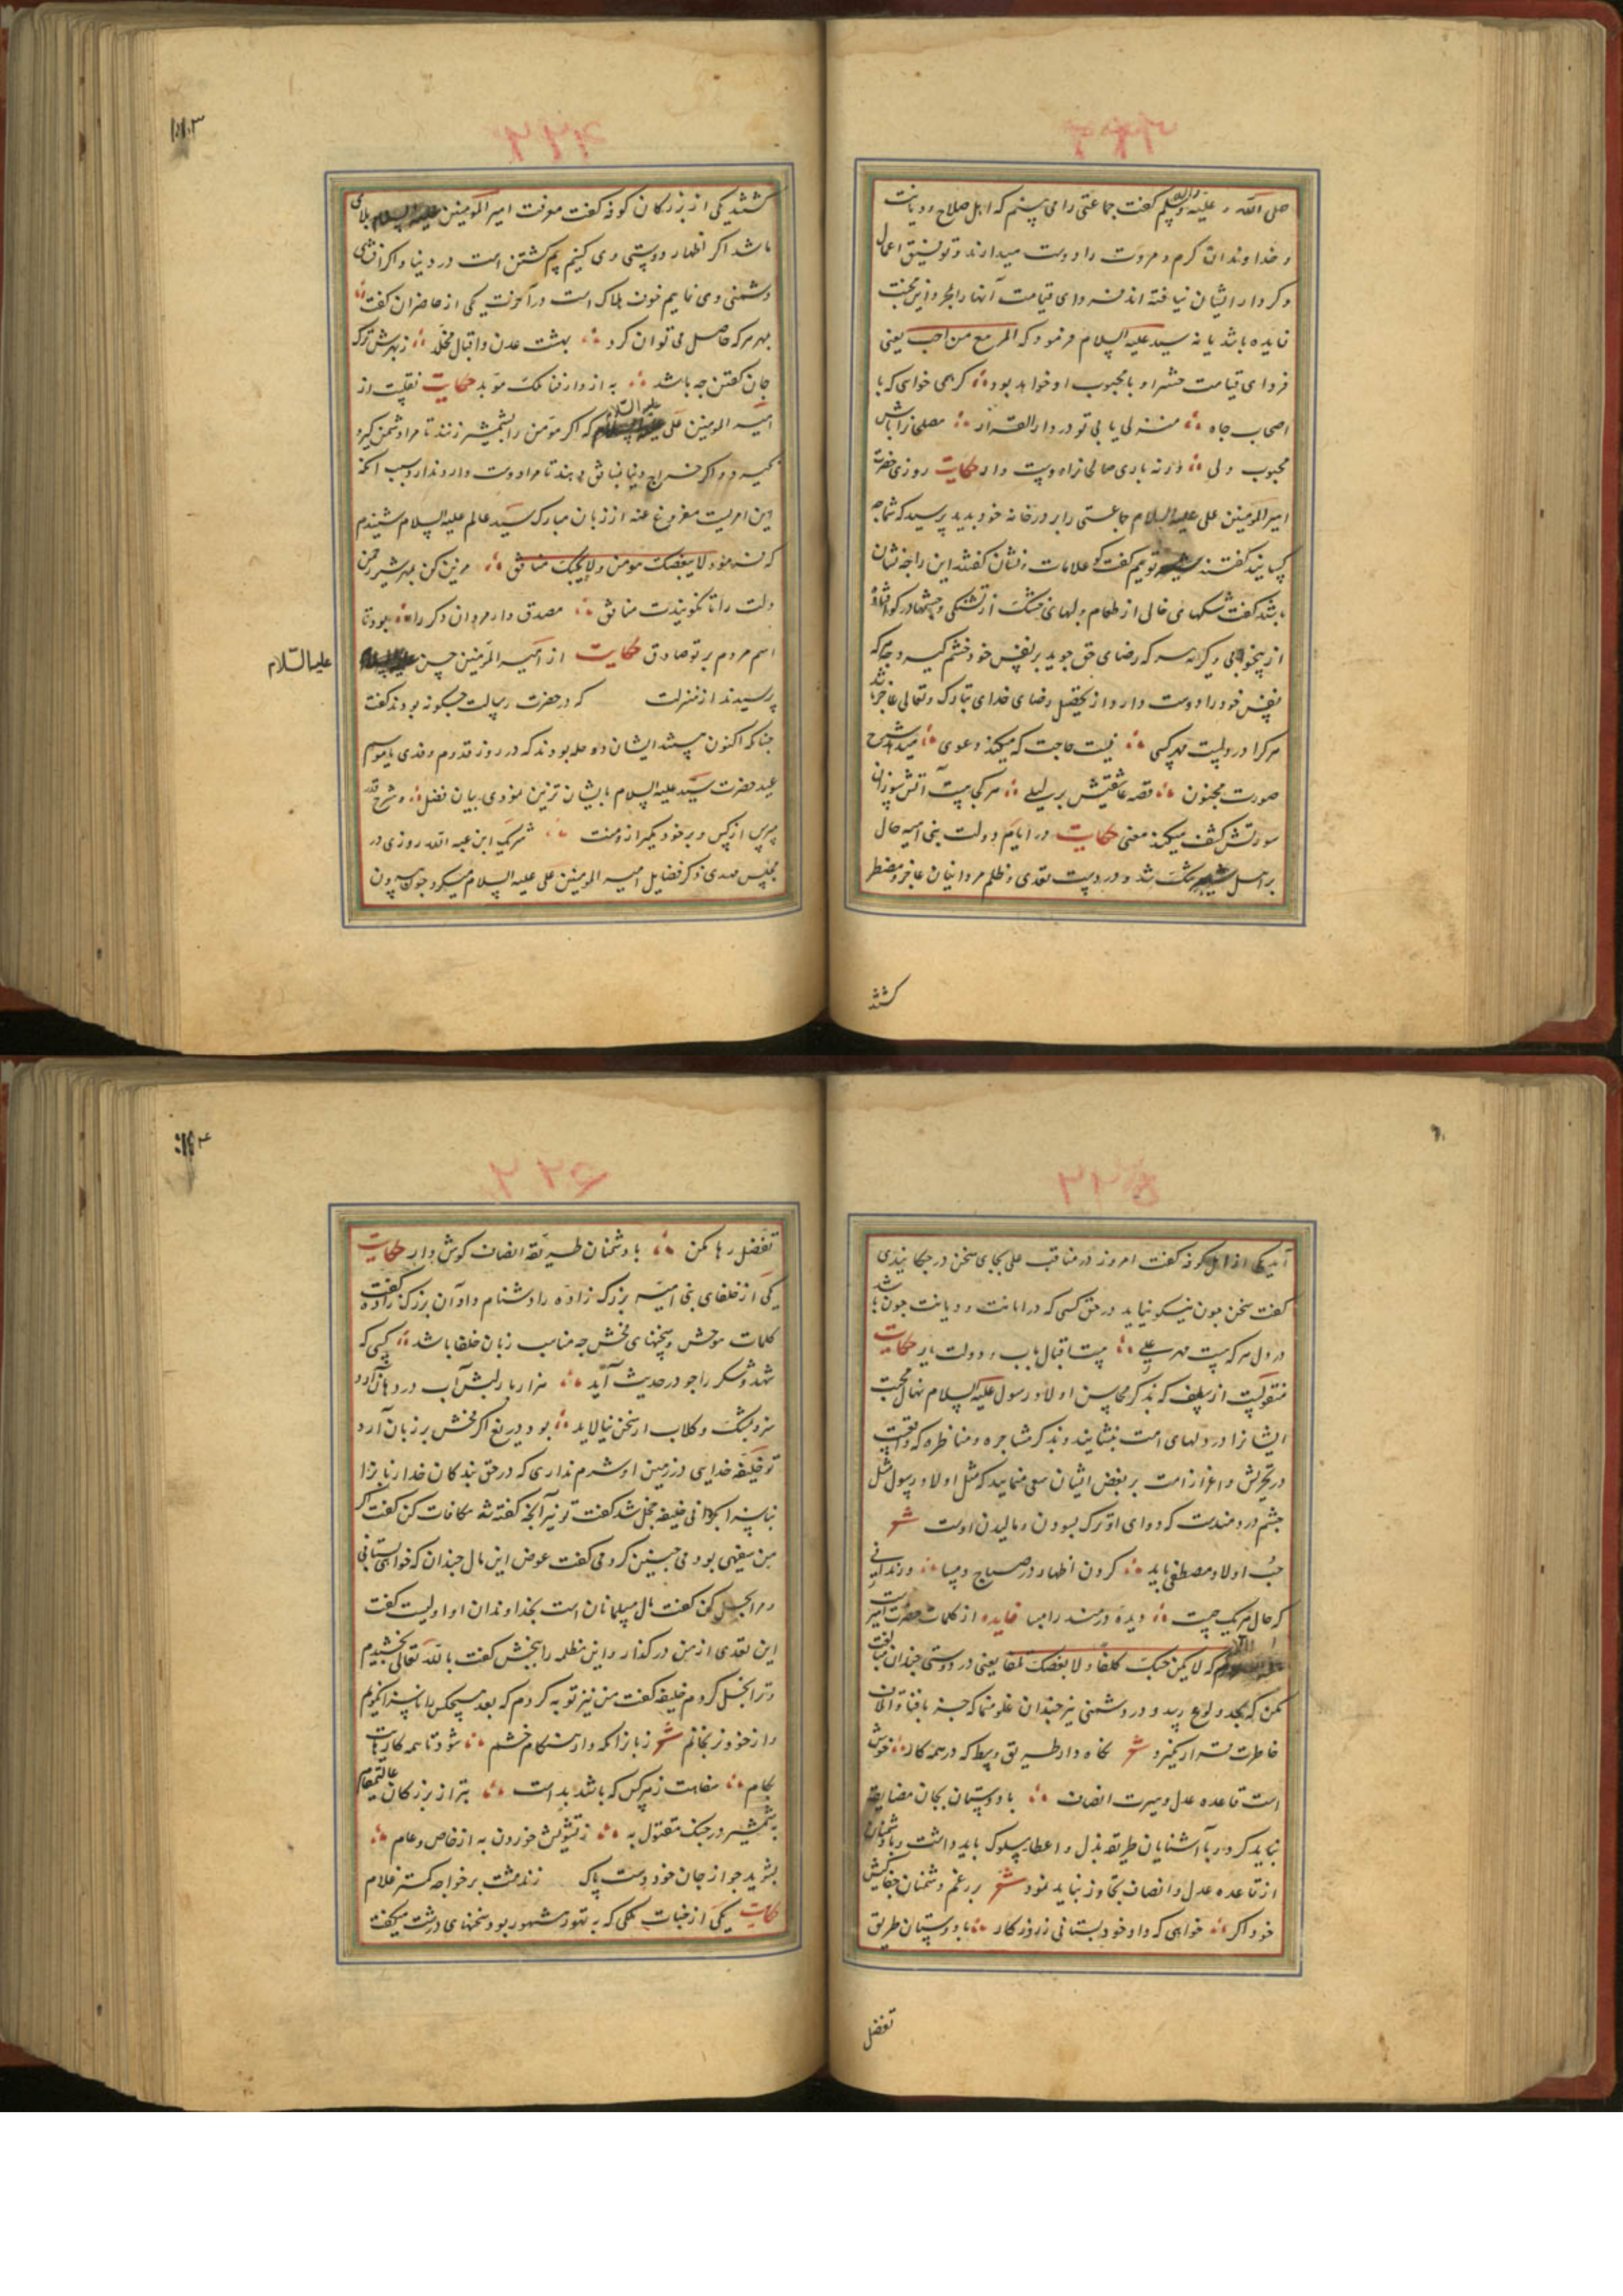 صلی الله علیه و آله وسلم گفت جماعتی را می بینم که اهل صلاح و دیانت
و خداوندان کرم و مروت را دوست میدارند و توفیق اعمال
و کردار ایشان نیافته اند فردای قیامت آنها را
فایده باشد یا نه سید علیه السلام فرمود که المرء مع من احب یعنی
فردای قیامت حشر او با محبوب او خواهد بود کر همی خواهی که با
اصحاب جاه منزلی یابی تو در دار القرار
محبوب ولی ورنه باری صالحانرا دوست دار حکایت روزی حضرت
امیر المومنین علی علیه السلام جماعتی را بر در خانه خود بدید پرسید که شما چه
کسانید گفتند توییم گفت کو علامات و نشان گفتند این را چه نشان
باشد گفت شکمهای خالی از طعام و لبهای خشک از تشنگی و چشمها در کو افتاده
از بیخوابی و کریه هر که رضای حق جوید بر نفس خود خشم کیرد و هر که
نفس خود را دوست دارد از تحصیل رضای خدای تبارک و تعالی عاجز باشد
هر کرا در دلیست مهر کسی نیست حاجت که میکند دعوی میدهد شرح
صورت مجنون قصه عاشقیش بر لیلی هر کجا هست آتش سوزانی
سوزتش کشف میکند معنی حکایت در ایام دولت بنی امیه حال
بر اهل تنک شد و در دست تعدی و ظلم مروانیان عاجز و مضطر
کشتند
۱۱۳
کشتند یکی از بزرکان کوفه گفت معرفت امیر المومنین بلائی
باشد اکر اظهار دوستی وی کنیم بیم کشتن است در دنیا و اکر افشای
دشمنی وی نماییم خوف هلاک است در آخرت یکی از حاضران گفت
بهر هر که حاصل می توان کرد بهشت عدن و اقبال مخلد ز بهرش ترک
جان گفتن چه باشد به از دار فنا ملک موبد حکایت نقلست از
امیر المومنین علی علیه السلام که اکر مومن را بشمشیر زنند تا مرا دشمن کیرد
نکیرد و اکر خراج دنیا بمنافق دهند تا مرا دوست دارد ندارد و سبب آنکه
این امریست مفروغ عنه از زبان مبارک سید عالم علیه السلام شنیدم
که فرمود لا یبغضک مومن و لا یحبک منافق مزین کن بمهر شیر حق
دلت را تا نکویندت منافق مصدق دار مردان دکر را بود تا
اسم مردم بر تو صادق حکایت از امیر المومنین حسین
علیه السلام
پرسیدند از منزلت که در حضرت رسالت چکونه بودند گفت
چنانکه اکنون هستند ایشان دو حله بودند که در روز قدوم وفدی یا موسم
عید حضرت سید علیه السلام بایشان تزیین نمودی بیان فضل و شرح قدر
مپرس از کس و بر خود مکیر از منت شریک ابن عبد الله روزی در
مجلس مهدی ذکر فضایل امیر المومنین علی علیه السلام میکرد چون بیرون
آمد یکی از اهل کوفه گفت امروز در مناقب علی بجای سخن در چکانیدی
گفت سخن چون نیکو نیاید در حق کسی که در امانت و دیانت چون باشد
در دل هر که هست مهر علی هست اقبال یاب و دولت یار حکایت
منقولست از سلف که بذکر محاسن اولاد رسول علیه السلام نهال محبت
ایشانرا در دلهای امت بنشانید و بذکر مشاجره و مناظره که واقعست
در تحریش و اغراء امت بر بغض ایشان سعی منمایید که مثل اولاد رسول مثل
چشم دردمندست که دوای او ترک بسودن و مالیدن اوست شعر
حب اولاد مصطفی باید کردن اظهار در صباح و مسا ور ندانی
که حال هر یک چیست دیده دردمند را مبسا فایده از کلمات حضرت امیر
که لا یکن حبک کلفا و لا بغضک تلفا یعنی در دوستی چندان مبالغت
مکن که بحد ولوع رسد و در دشمنی نیز چندان غلو منما که جز بافنا و اتلاف
خاطرت قرار نکیرد شعر نکاه دار طریق وسط که در همه کار خوش
است قاعده عدل و سیرت انصاف با دوستان بجان مضایقه
نباید کرد و با آشنایان طریقه بذل و اعطا سلوک باید داشت و با دشمنان
از قاعده عدل و انصاف تجاوز نباید نمود شعر بر رغم دشمنان جفا کیش
خود اکر خواهی که داد خود بستانی ز روزکار با دوستان طریق
تفضل
۱۱۴
تفضل رها مکن با دشمنان طریقه انصاف کوش دار حکایت
یکی از خلفای بنی امیه بزرک زاده را دشنام داد آن بزرک زاده گفت
کلمات موحش و سخنهای فحش چه مناسب زبان خلفا باشد کسی که
شهد و شکر را چو در حدیث آید هزار بار لبش آب در دهان آرد
سزد بمشک و کلاب ار سخن نیالاید بود دریغ اکر فحش بر زبان آرد
تو خلیفه خدایی در زمین او شرم نداری که در حق بندکان خدا زبان را
بناسزا بجنبانی خلیفه خجل شد گفت تو نیز آنچه گفته شد مکافات کن گفت اکر
من سفیهی بودمی چنین کردمی گفت عوض این مال چندان که خواهی بستانی
و مرا بحل کن گفت مال مسلمانان است بخداوندان او اولیست گفت
این تعدی از من درکذار و این مظلمه را ببخش گفت بالله تعالی بخشیدم
و ترا بحل کردم خلیفه گفت من نیز توبه کردم که بعد هیچکس را ناسزا نکویم
و از خود نرنجانم شعر زبان را نکه دار هنکام خشم شود تا همه کارهایت
بکام سفاهت ز هر کس که باشد بد است بتر از بزرکان عالیمقام
بشمشیر در جنک مقتول به ز تشویش خوردن به از خاص و عام
بشوید چو از جان خود دست پاک زند مشت بر خواجه کمتر غلام
حکایت یکی از ملکی که به تهور مشهور بود سخنهای درشت میکفت